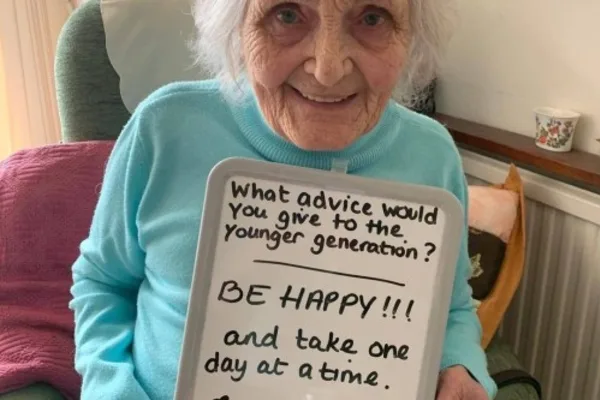 What advice would
you give to the
younger generation?
BE HAPPY!!!
and take one
day at a time.